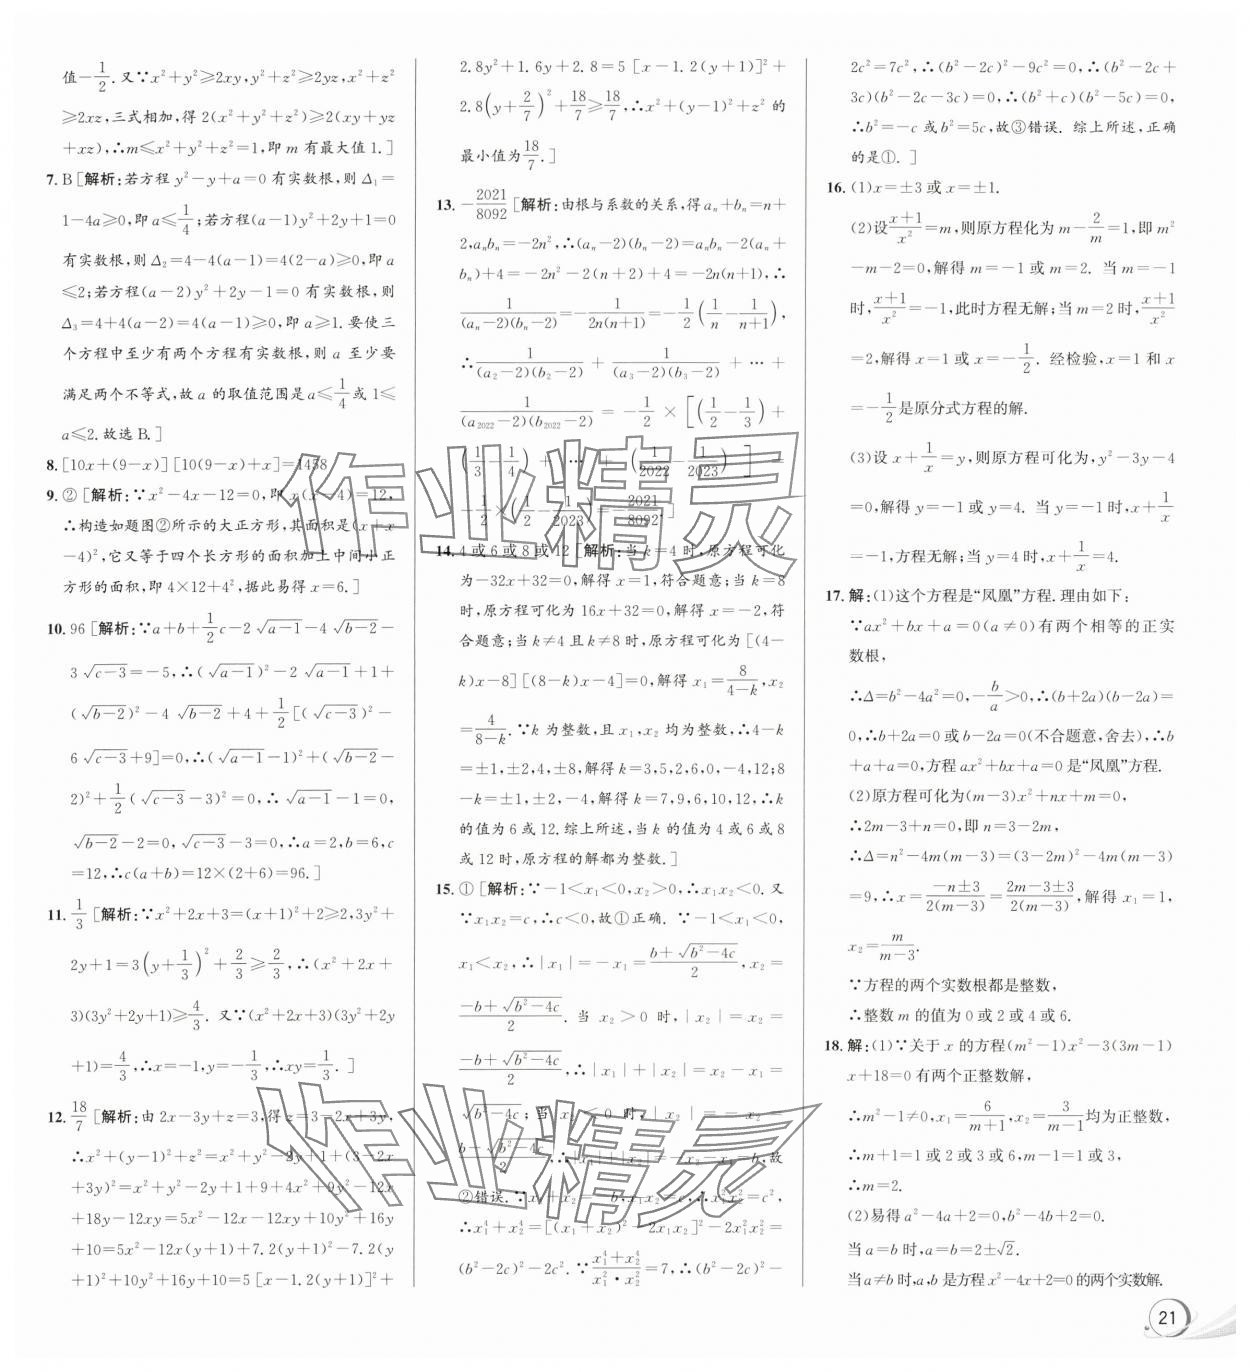 值-1/2. 又∵x²+y²≥2xy,y²+z²≥2yz,x²+z²
≥2xz,三式相加,得 2(x²+y²+z²)≥2(xy+yz
+xz),∴m≤x²+y²+z²=1,即 m 有最大值 1.]
7. B [解析:若方程 y²-y+a=0 有实数根,则 Δ₁=
1-4a≥0,即 a≤1/4;若方程(a-1)y²+2y+1=0
有实数根,则 Δ₂=4-4(a-1)=4(2-a)≥0,即 a
≤2;若方程(a-2)y²+2y-1=0 有实数根,则
Δ₃=4+4(a-2)=4(a-1)≥0,即 a≥1. 要使三
个方程中至少有两个方程有实数根,则 a 至少要
满足两个不等式,故 a 的取值范围是 a≤1/4或 1≤
a≤2. 故选 B.]
8. [10x+(9-x)][10(9-x)+x]=1458
9. ② [解析:∵x²-4x-12=0,即 x(x-4)=12,
∴构造如题图②所示的大正方形,其面积是(x+x
-4)²,它又等于四个长方形的面积加上中间小正
方形的面积,即 4×12+4²,据此易得 x=6.]
10. 96 [解析:∵a+b+1/2c-2√(a-1)-4√(b-2)-
3√(c-3)=-5,∴(√(a-1))²-2√(a-1)+1+
(√(b-2))²-4√(b-2)+4+1/2[(√(c-3))²-
6√(c-3)+9]=0,∴(√(a-1)-1)²+(√(b-2)-
2)²+1/2(√(c-3)-3)²=0,∴√(a-1)-1=0,
√(b-2)-2=0,√(c-3)-3=0,∴a=2,b=6,c
=12,∴c(a+b)=12×(2+6)=96.]
11. 1/3 [解析:∵x²+2x+3=(x+1)²+2≥2,3y²+
2y+1=3(y+1/3)²+2/3≥2/3,∴(x²+2x+
3)(3y²+2y+1)≥4/3. 又∵(x²+2x+3)(3y²+2y
+1)=4/3,∴x=-1,y=-1/3,∴xy=1/3.]
12. 18/7 [解析:由 2x-3y+z=3,得 z=3-2x+3y,
∴x²+(y-1)²+z²=x²+y²-2y+1+(3-2x
+3y)²=x²+y²-2y+1+9+4x²+9y²-12x
+18y-12xy=5x²-12x-12xy+10y²+16y
+10=5x²-12x(y+1)+7.2(y+1)²-7.2(y
+1)²+10y²+16y+10=5[x-1.2(y+1)]²+
2.8y²+1.6y+2.8=5[x-1.2(y+1)]²+
2.8(y+2/7)²+18/7≥18/7,∴x²+(y-1)²+z² 的
最小值为18/7.]
13. -2021/8092 [解析:由根与系数的关系,得 aₙ+bₙ=n+
2,aₙbₙ=-2n²,∴(aₙ-2)(bₙ-2)=aₙbₙ-2(aₙ+
bₙ)+4=-2n²-2(n+2)+4=-2n(n+1),∴
1/((aₙ-2)(bₙ-2))=-1/(2n(n+1))=-1/2(1/n-1/(n+1)),
∴1/((a₂-2)(b₂-2))+1/((a₃-2)(b₃-2))+…+
1/((a₂₀₂₂-2)(b₂₀₂₂-2))=-1/2×[(1/2-1/3)+
(1/3-1/4)+…+(1/2022-1/2023)]=
-1/2×(1/2-1/2023)=-2021/8092.]
14. 4 或 6 或 8 或 12 [解析:当 k=4 时,原方程可化
为-32x+32=0,解得 x=1,符合题意;当 k=8
时,原方程可化为 16x+32=0,解得 x=-2,符
合题意;当 k≠4 且 k≠8 时,原方程可化为[(4-
k)x-8][(8-k)x-4]=0,解得 x₁=8/(4-k),x₂
=4/(8-k). ∵k 为整数,且 x₁,x₂ 均为整数,∴4-k
=±1,±2,4,±8,解得 k=3,5,2,6,0,-4,12;8
-k=±1,±2,-4,解得 k=7,9,6,10,12,∴k
的值为 6 或 12. 综上所述,当 k 的值为 4 或 6 或 8
或 12 时,原方程的解都为整数.]
15. ① [解析:∵-1<x₁<0,x₂>0,∴x₁x₂<0. 又
∵x₁x₂=c,∴c<0,故①正确. ∵-1<x₁<0,
x₁<x₂,∴|x₁|=-x₁=(b+√(b²-4c))/2,x₂=
(-b+√(b²-4c))/2. 当 x₂>0 时,|x₂|=x₂=
(-b+√(b²-4c))/2,∴|x₁|+|x₂|=x₂-x₁=
√(b²-4c);当 x₂<0 时,|x₂|=-x₂=
(b-√(b²-4c))/2,∴|x₁|+|x₂|=-x₂-x₁=b,故
②错误. ∵x₁+x₂=-b,x₁x₂=c,∴x₁²x₂²=c²,
∴x₁⁴+x₂⁴=[(x₁+x₂)²-2x₁x₂]²-2x₁²x₂²=
(b²-2c)²-2c². ∵(x₁⁴+x₂⁴)/(x₁²·x₂²)=7,∴(b²-2c)²-
2c²=7c²,∴(b²-2c)²-9c²=0,∴(b²-2c+
3c)(b²-2c-3c)=0,∴(b²+c)(b²-5c)=0,
∴b²=-c 或 b²=5c,故③错误. 综上所述,正确
的是①.]
16. (1)x=±3 或 x=±1.
(2)设(x+1)/x²=m,则原方程化为 m-2/m=1,即 m²
-m-2=0,解得 m=-1 或 m=2. 当 m=-1
时,(x+1)/x²=-1,此时方程无解;当 m=2 时,(x+1)/x²
=2,解得 x=1 或 x=-1/2. 经检验,x=1 和 x
=-1/2是原分式方程的解.
(3)设 x+1/x=y,则原方程可化为,y²-3y-4
=0,解得 y=-1 或 y=4. 当 y=-1 时,x+1/x
=-1,方程无解;当 y=4 时,x+1/x=4.
17. 解:(1)这个方程是“凤凰”方程. 理由如下:
∵ax²+bx+a=0(a≠0)有两个相等的正实
数根,
∴Δ=b²-4a²=0,-b/a>0,∴(b+2a)(b-2a)=
0,∴b+2a=0 或 b-2a=0(不合题意,舍去),∴b
+a+a=0,方程 ax²+bx+a=0 是“凤凰”方程.
(2)原方程可化为(m-3)x²+nx+m=0,
∴2m-3+n=0,即 n=3-2m,
∴Δ=n²-4m(m-3)=(3-2m)²-4m(m-3)
=9,∴x=(-n±3)/(2(m-3))=(2m-3±3)/(2(m-3)),解得 x₁=1,
x₂=m/(m-3).
∵方程的两个实数根都是整数,
∴整数 m 的值为 0 或 2 或 4 或 6.
18. 解:(1)∵关于 x 的方程(m²-1)x²-3(3m-1)
x+18=0 有两个正整数解,
∴m²-1≠0,x₁=6/(m+1),x₂=3/(m-1)均为正整数,
∴m+1=1 或 2 或 3 或 6,m-1=1 或 3,
∴m=2.
(2)易得 a²-4a+2=0,b²-4b+2=0.
当 a=b 时,a=b=2±√2.
当 a≠b 时,a,b 是方程 x²-4x+2=0 的两个实数解.
21
作业精灵
作业精灵